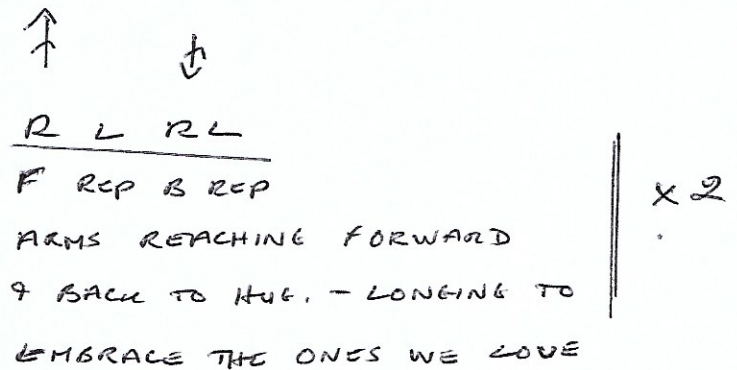 R L R L
F REP B REP
x 2
ARMS REACHING FORWARD
& BACK TO HUG. - LONGING TO
EMBRACE THE ONES WE LOVE